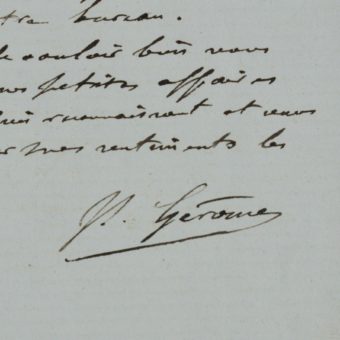 tre bureau.
de vouloir bien vous
mes petites affaires
suis reconnaissant et vous
mes sentiments les
Gérome